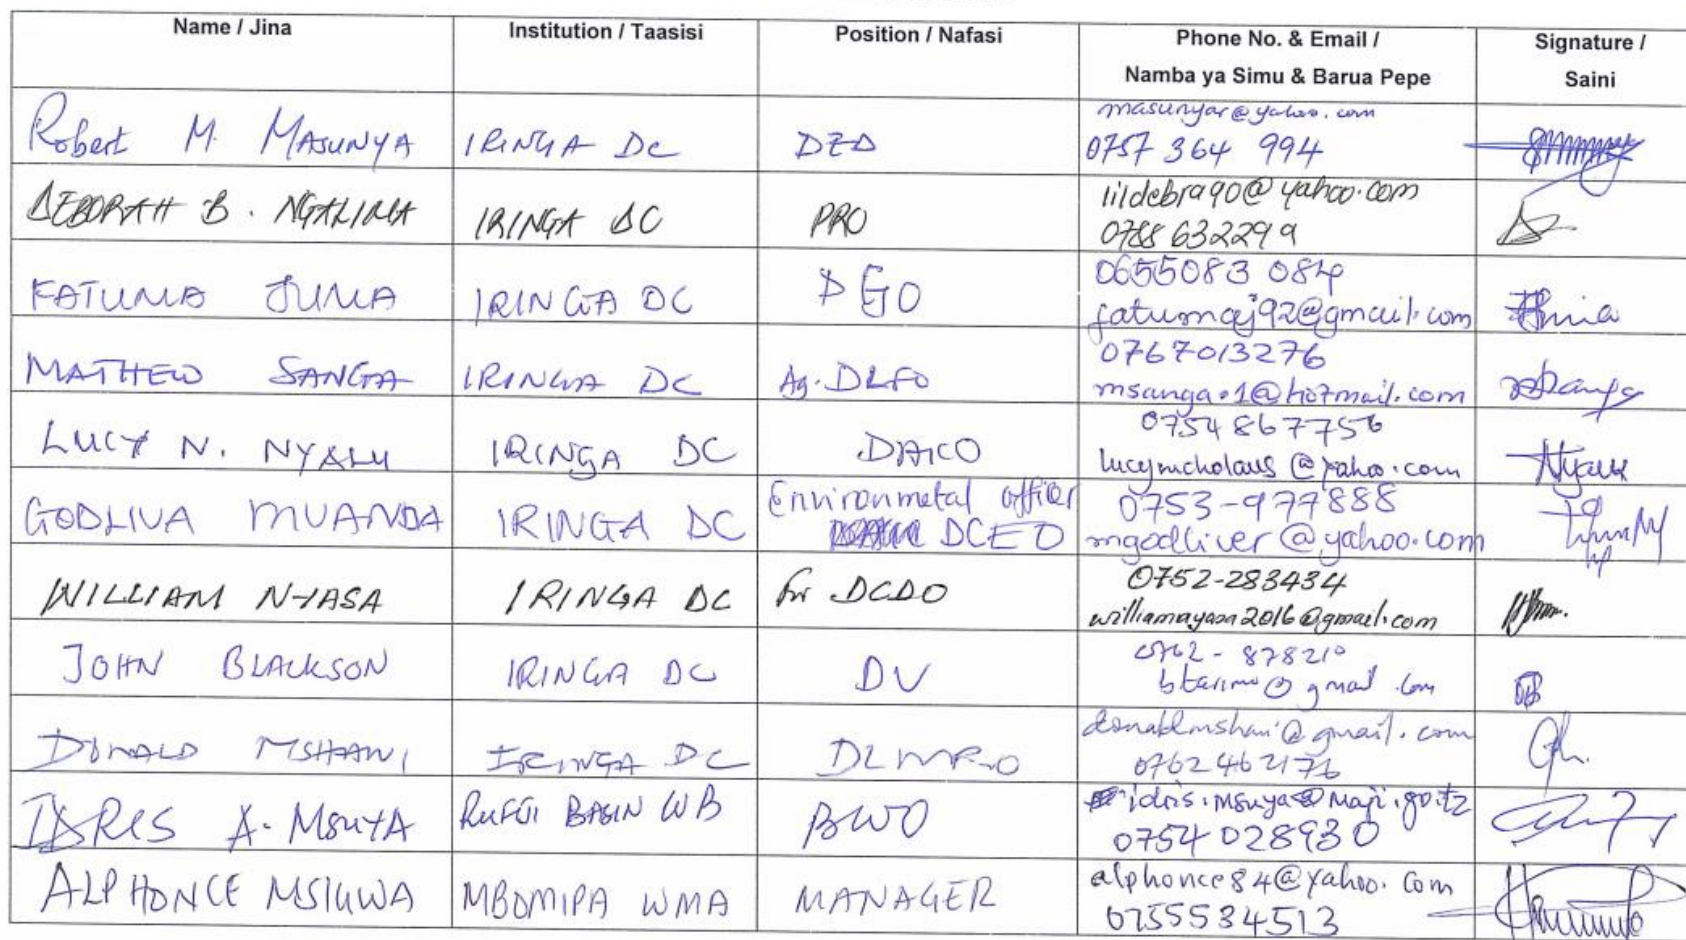 Name / Jina Institution / Taasisi Position / Nafasi Phone No. & Email / Signature /
Namba ya Simu & Barua Pepe Saini
masunyar@yahoo.com
Robert M. MASUNYA IRINGA DC DED 0757 364 994
DEBORAH B. NGALIMA IRINGA DC PRO lildebra90@yahoo.com
0788 632299
FATUMA JUMA IRINGA DC DGO 0655083 084
fatumaj92@gmail.com
MATHEW SANGA IRINGA DC Ag. DLFO 0767013276
msanga.1@hotmail.com
LUCY N. NYALU IRINGA DC DAICO 0754 867756
lucynicholaus@yahoo.com
GODLIVA MUANDA IRINGA DC Environmetal officer 0753-977888
DCEO mgodliver@yahoo.com
WILLIAM NYASA IRINGA DC for DCDO 0752-283434
williamnyasa2016@gmail.com
JOHN BLACKSON IRINGA DC DV 0762-878210
btarimo@gmail.com
DONALD MSHANI IRINGA DC donaldmshani@gmail.com
0762462176
IDRIS A. MSUYA RUFIJI BASIN WB BWO idris.msuya@maji.go.tz
0754 028930
ALPHONCE MSIGWA MBOMIPA WMA MANAGER alphonce84@yahoo.com
0755534513